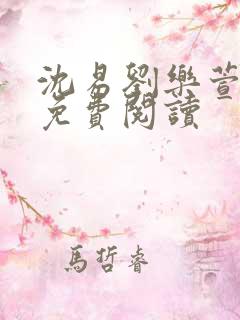 沈易劉樂萱
免費閱讀
馬哲睿